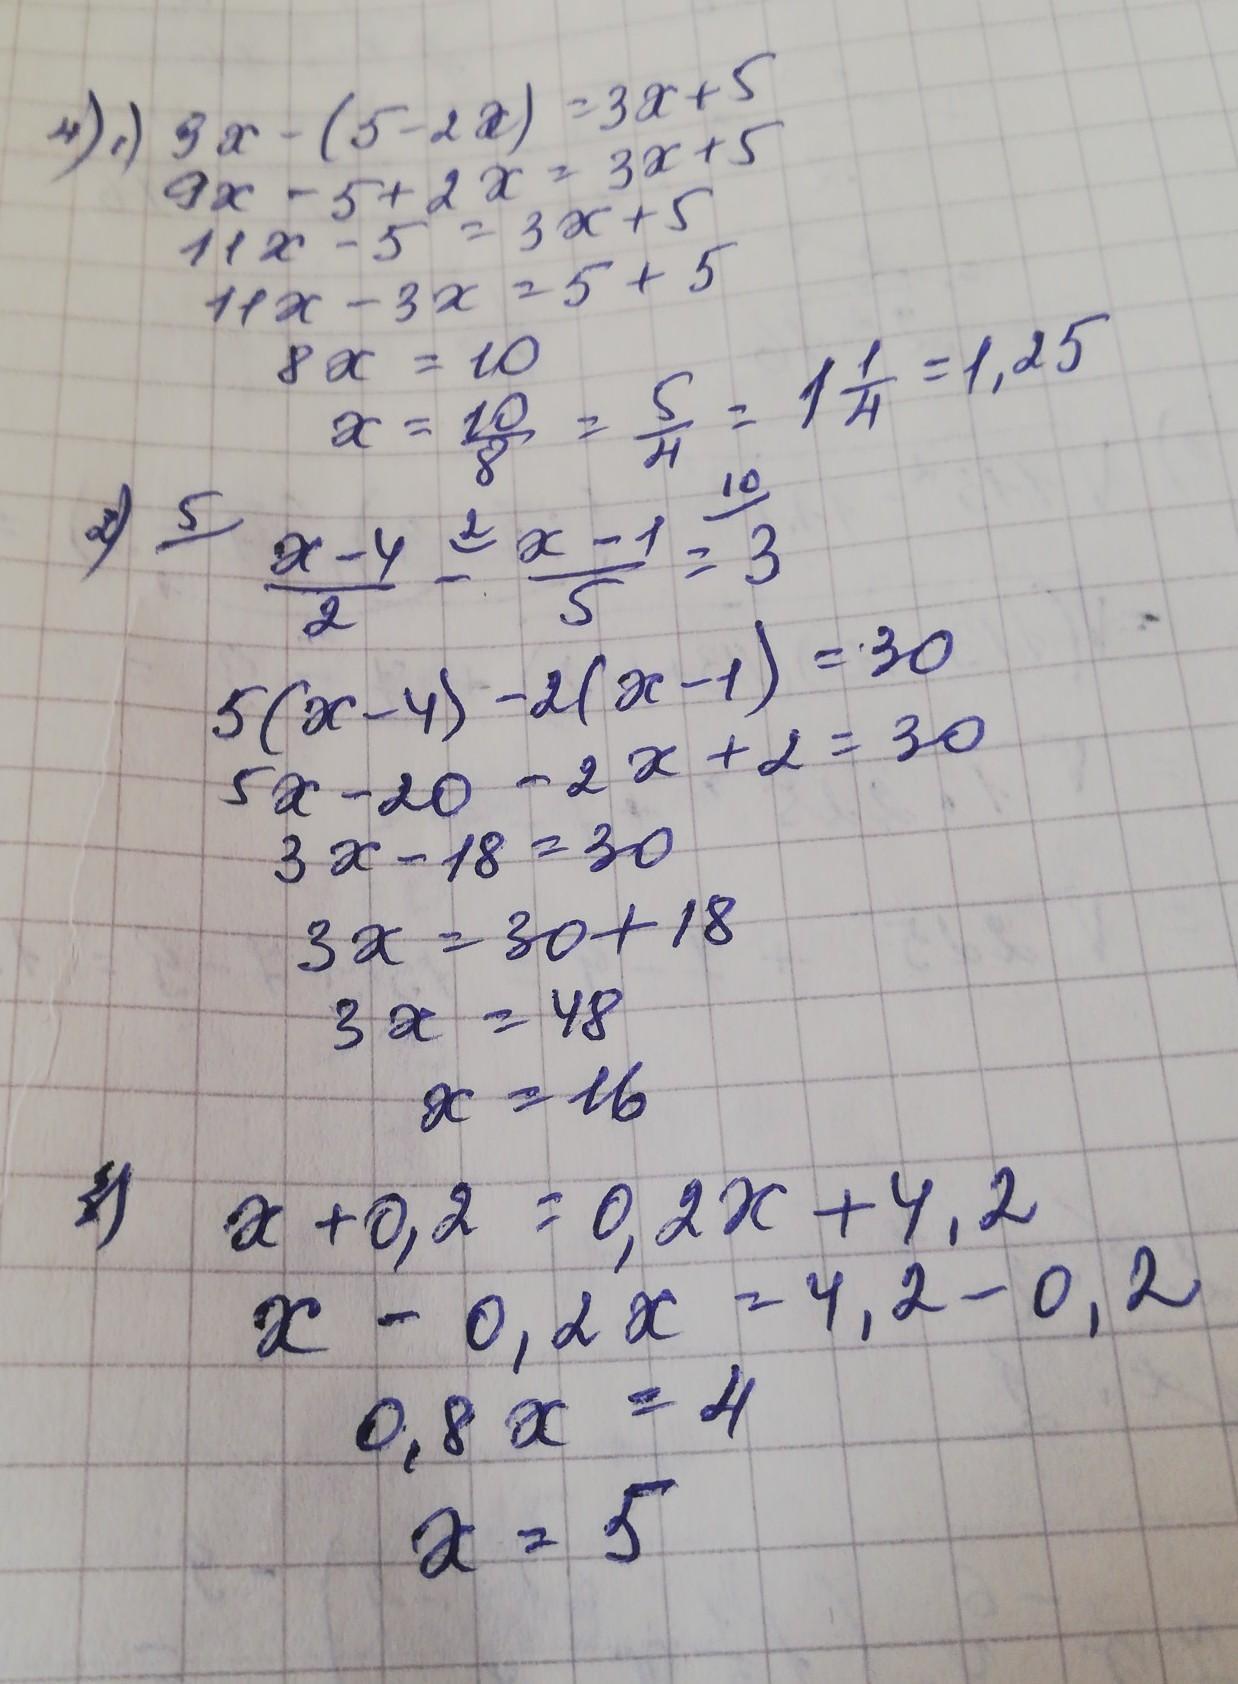 4) 1) 9x - (5 - 2x) = 3x + 5
9x - 5 + 2x = 3x + 5
11x - 5 = 3x + 5
11x - 3x = 5 + 5
8x = 10
x = 10/8 = 5/4 = 1 1/4 = 1,25
2) 5/ x-4/2 - 2/ x-1/5 = 10/ 3
5(x-4) - 2(x-1) = 30
5x - 20 - 2x + 2 = 30
3x - 18 = 30
3x = 30 + 18
3x = 48
x = 16
x + 0,2 = 0,2x + 4,2
x - 0,2x = 4,2 - 0,2
0,8x = 4
x = 5